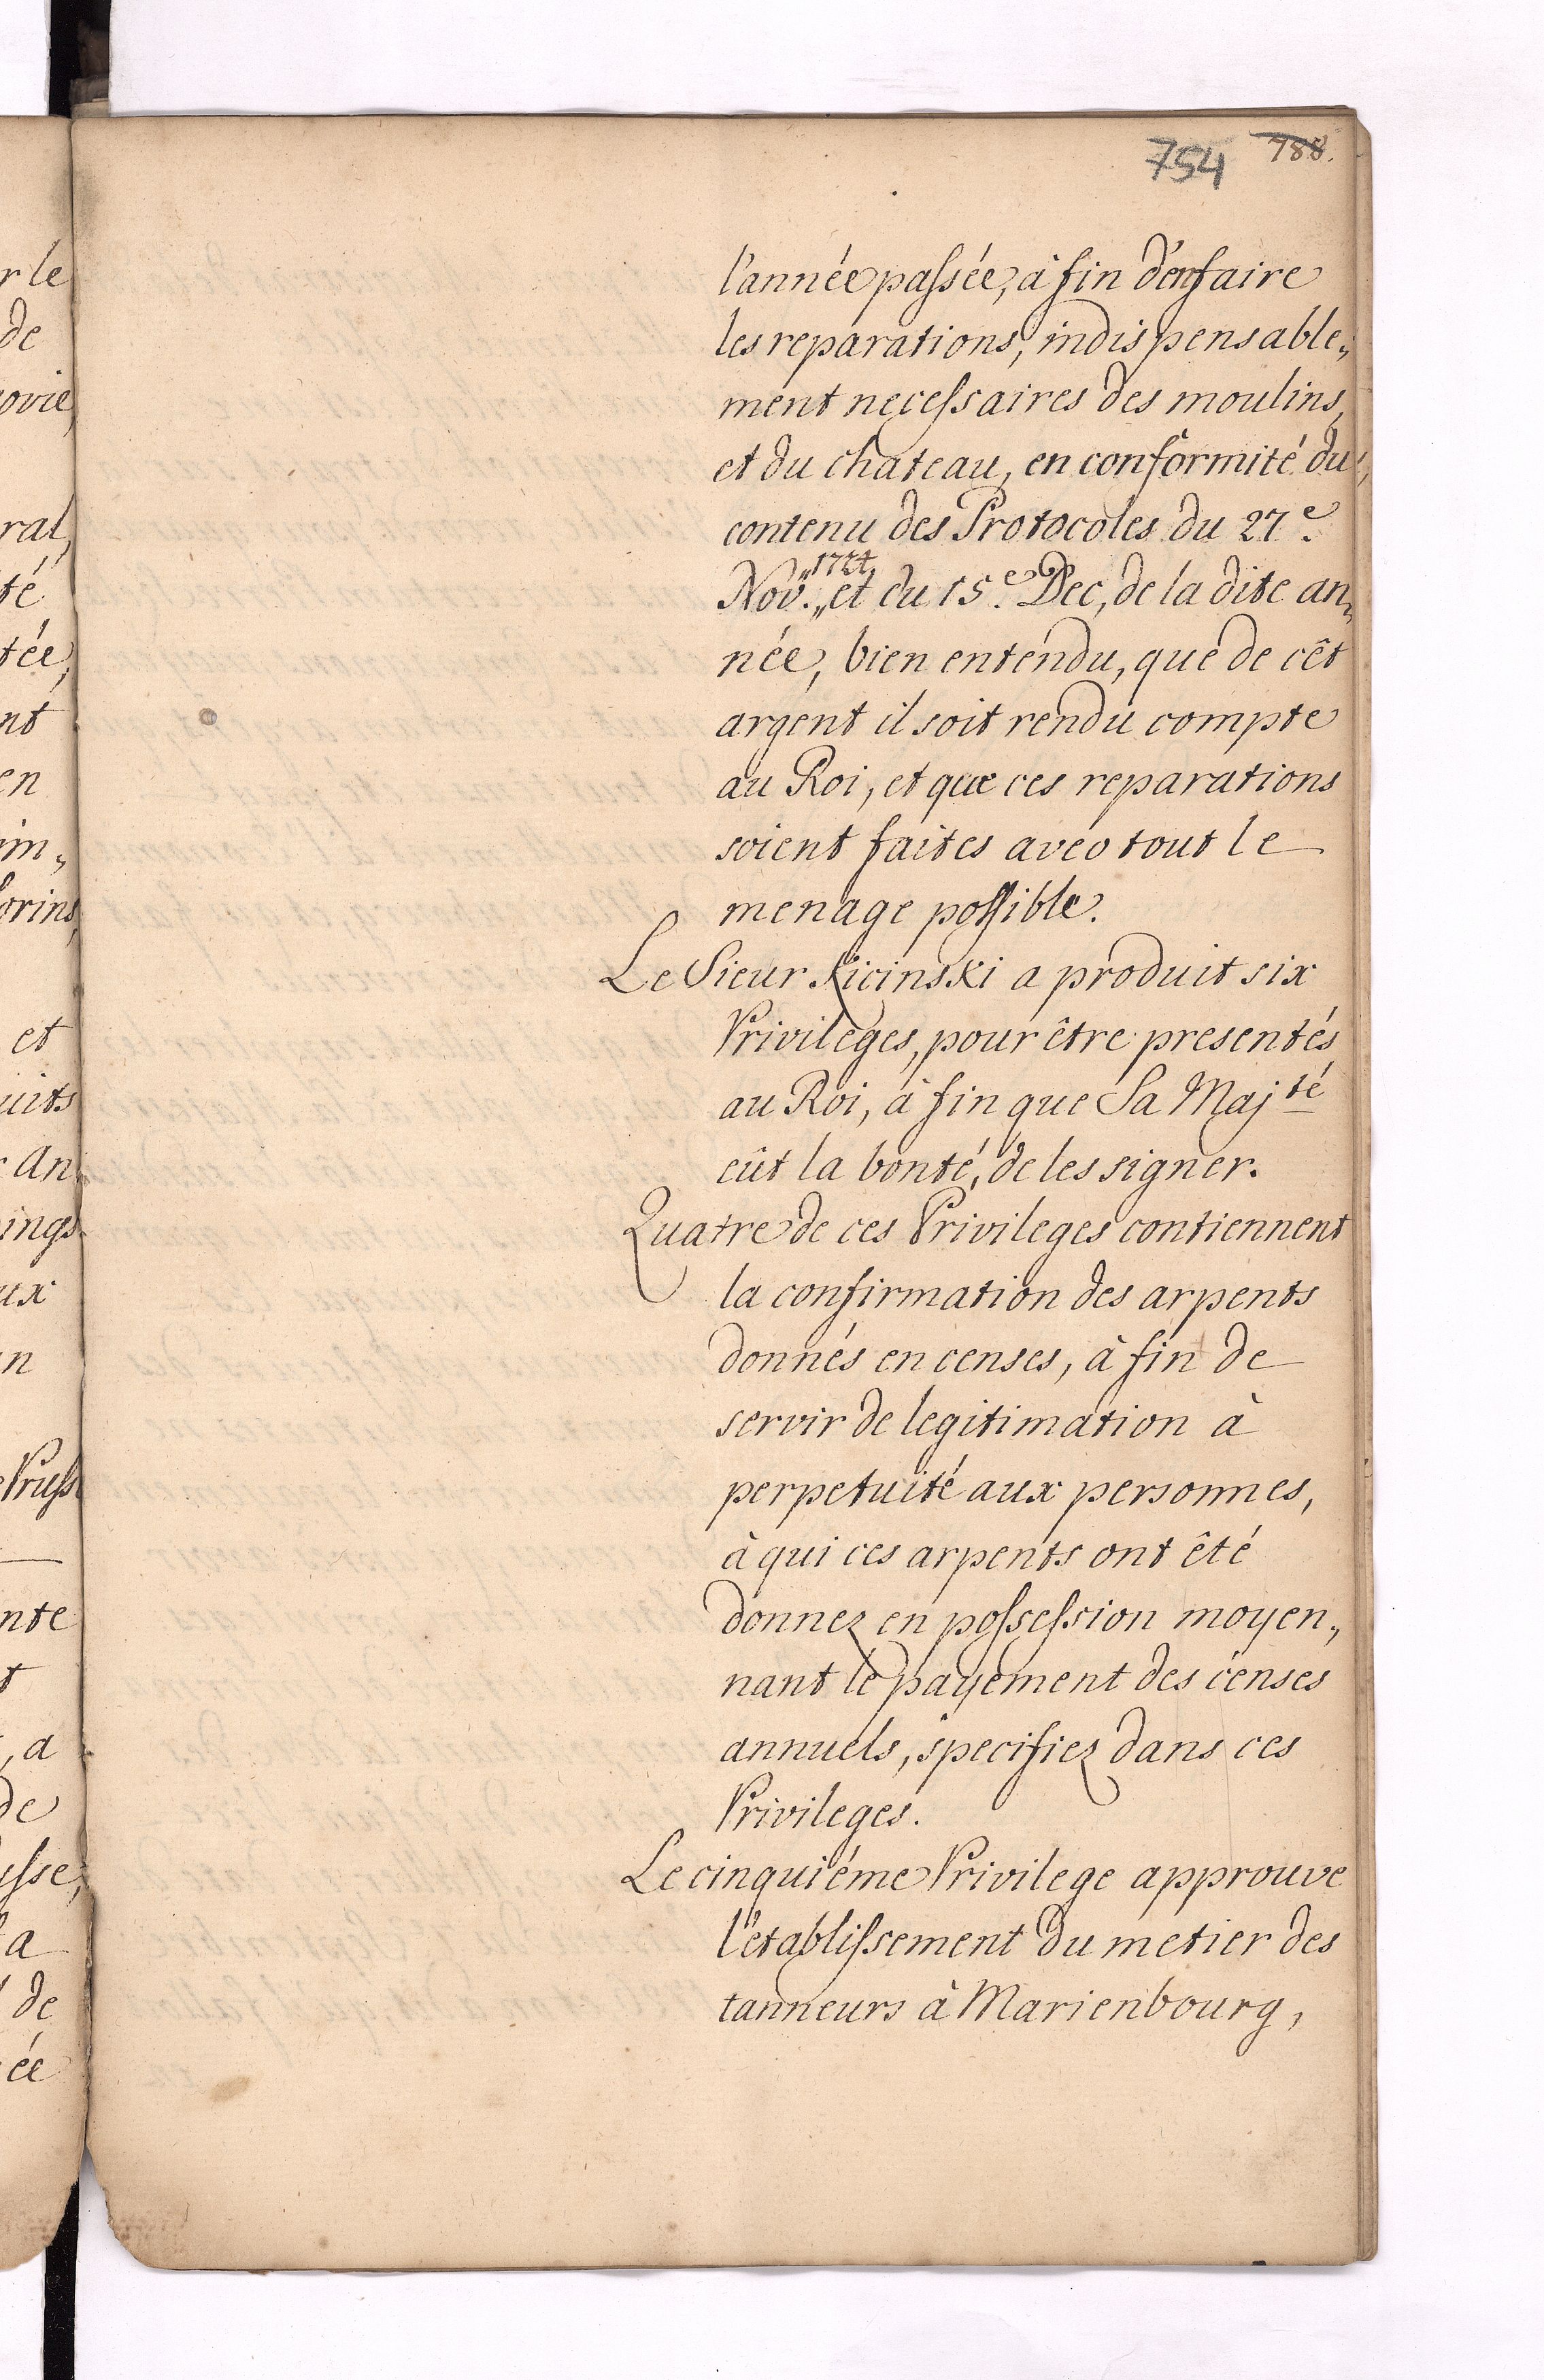 754 788.
l'année passée, à fin d'en faire
les reparations, indispensable„
ment necessaires des moulins,
et du chateau, en conformité du
contenu des Protocoles du 27.e
Nov. „1724. „et du 15.e Dec, de la dite an„
née, bien entendu, que de cêt
argent il soit rendu compte
au Roi, et que ces reparations
soient faites avec tout le
menage possible.
Le Sieur Kicinski a produit six
Privileges, pour être presentés
au Roi, à fin que Sa Maj.té
eût la bonté, de les signer.
Quatre de ces Privileges contiennent
la confirmation des arpents
donnés en censes, à fin de
servir de legitimation à
perpetuité aux personnes,
à qui ces arpents ont êté
donnez en possession moyen„
nant le payement des censes
annuels, specifiez dans ces
Privileges.
Le cinquiéme Privilege approuve
l'etablissement du metier des
tanneurs à Marienbourg,